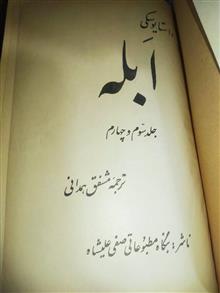 داستایوسکی
ابله
جلد سوم و چهارم
ترجمهٔ مشفق همدانی
ناشر: بنگاه مطبوعاتی صفی علیشاه